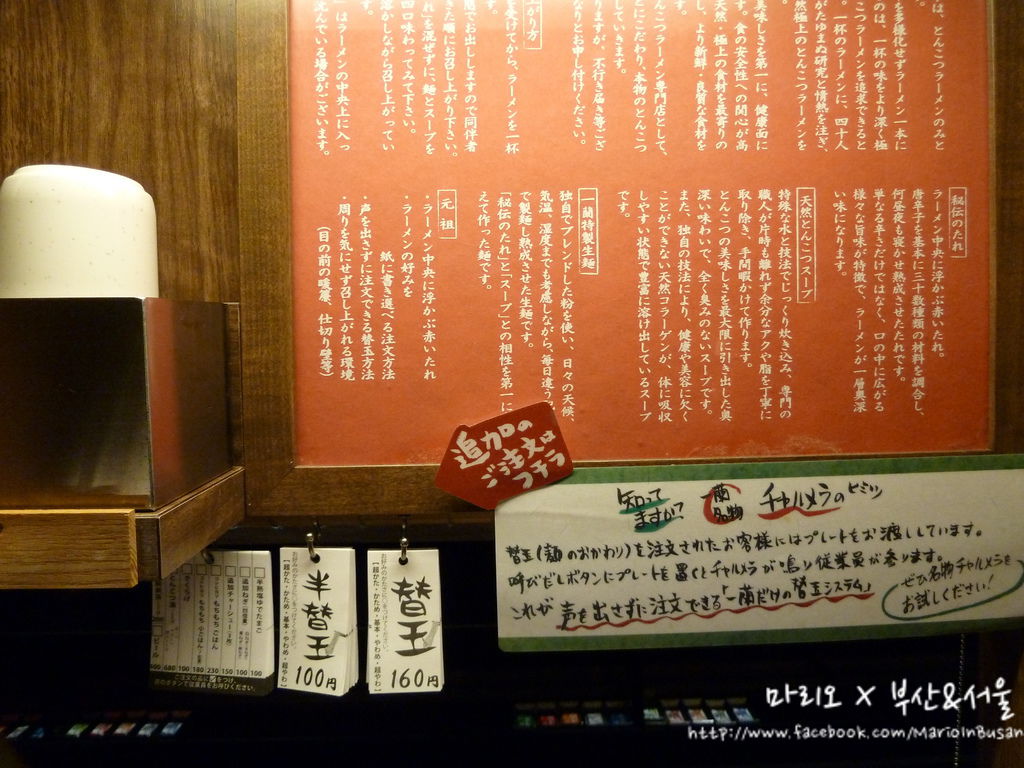 は、とんこつラーメンのみと
を多様化せずラーメン一本に
のは、一杯の味をより深く極
こつラーメンを追求できると
。一杯のラーメンに、四十人
がたゆまぬ研究と情熱を注ぎ、
然極上のとんこつラーメンを
美味しさを第一に、健康面に
す。食の安全性への関心が高
天然・極上の食材を最寄りの
し、より新鮮・良質な食材を
んこつラーメン専門店として、
にこだわり、本物のとんこつ
しています。
りますが、不行き届き等ござ
なりとお申し付けください。
がり方
を受けてから、ラーメンを一杯
態でお出ししますので同伴者
きた順にお召し上がり下さい。
れ」を混ぜずに、麺とスープを
四口味わってみて下さい。
溶かしながら召し上がってい
」はラーメンの中央上に入っ
沈んでいる場合がございます。
秘伝のたれ
ラーメン中央に浮かぶ赤いたれ。
唐辛子を基本に三十数種類の材料を調合し、
何昼夜も寝かせ熟成させたたれです。
単なる辛さだけではなく、口の中に広がる
様々な旨味が特徴で、ラーメンが一層奥深
い味になります。
天然とんこつスープ
特殊な水と技法でじっくり炊き込み、専門の
職人が片時も離れず余分なアクや脂を丁寧に
取り除き、手間暇かけて作ります。
とんこつの美味しさを最大限に引き出した奥
深い味わいで、全く臭みのないスープです。
また、独自の技法により、健康や美容に欠く
ことができない天然コラーゲンが、体に吸収
しやすい状態で豊富に溶け出しているスープ
です。
一蘭特製生麺
独自でブレンドした粉を使い、日々の天候、
気温、湿度までも考慮しながら、毎日違う
で製麺し熟成させた生麺です。
「秘伝のたれ」と「スープ」との相性を第一に
えて作った麺です。
元祖
・ラーメン中央に浮かぶ赤いたれ
・ラーメンの好みを
紙に書き選べる注文方法
・声を出さずに注文できる替玉方法
・周りを気にせず召し上がれる環境
(目の前の暖簾、仕切り壁等)
追加の
ご注文は
コチラ
知って
ますか?
一蘭
名物
チャルメラのヒミツ
替玉(麺のおかわり)を注文されたお客様にはプレートをお渡ししています。
呼びだしボタンにプレートを置くとチャルメラが鳴り従業員が参ります。
これが声を出さずに注文できる「一蘭だけの替玉システム」
ぜひ名物チャルメラを
お試しください!
半熟塩ゆでたまご
追加ねぎ
追加チャーシュー
ビール
680 100 180 230 150 100 100
ご注文の品に☑をつけ、
お好みのかたさに○をつけてください。
【超かた・かため・基本・やわめ・超やわ】
半替玉
100円
お好みのかたさに○をつけてください。
【超かた・かため・基本・やわめ・超やわ】
替玉
160円
마리오 X 부산&서울
http://www.facebook.com/MarioInBusan